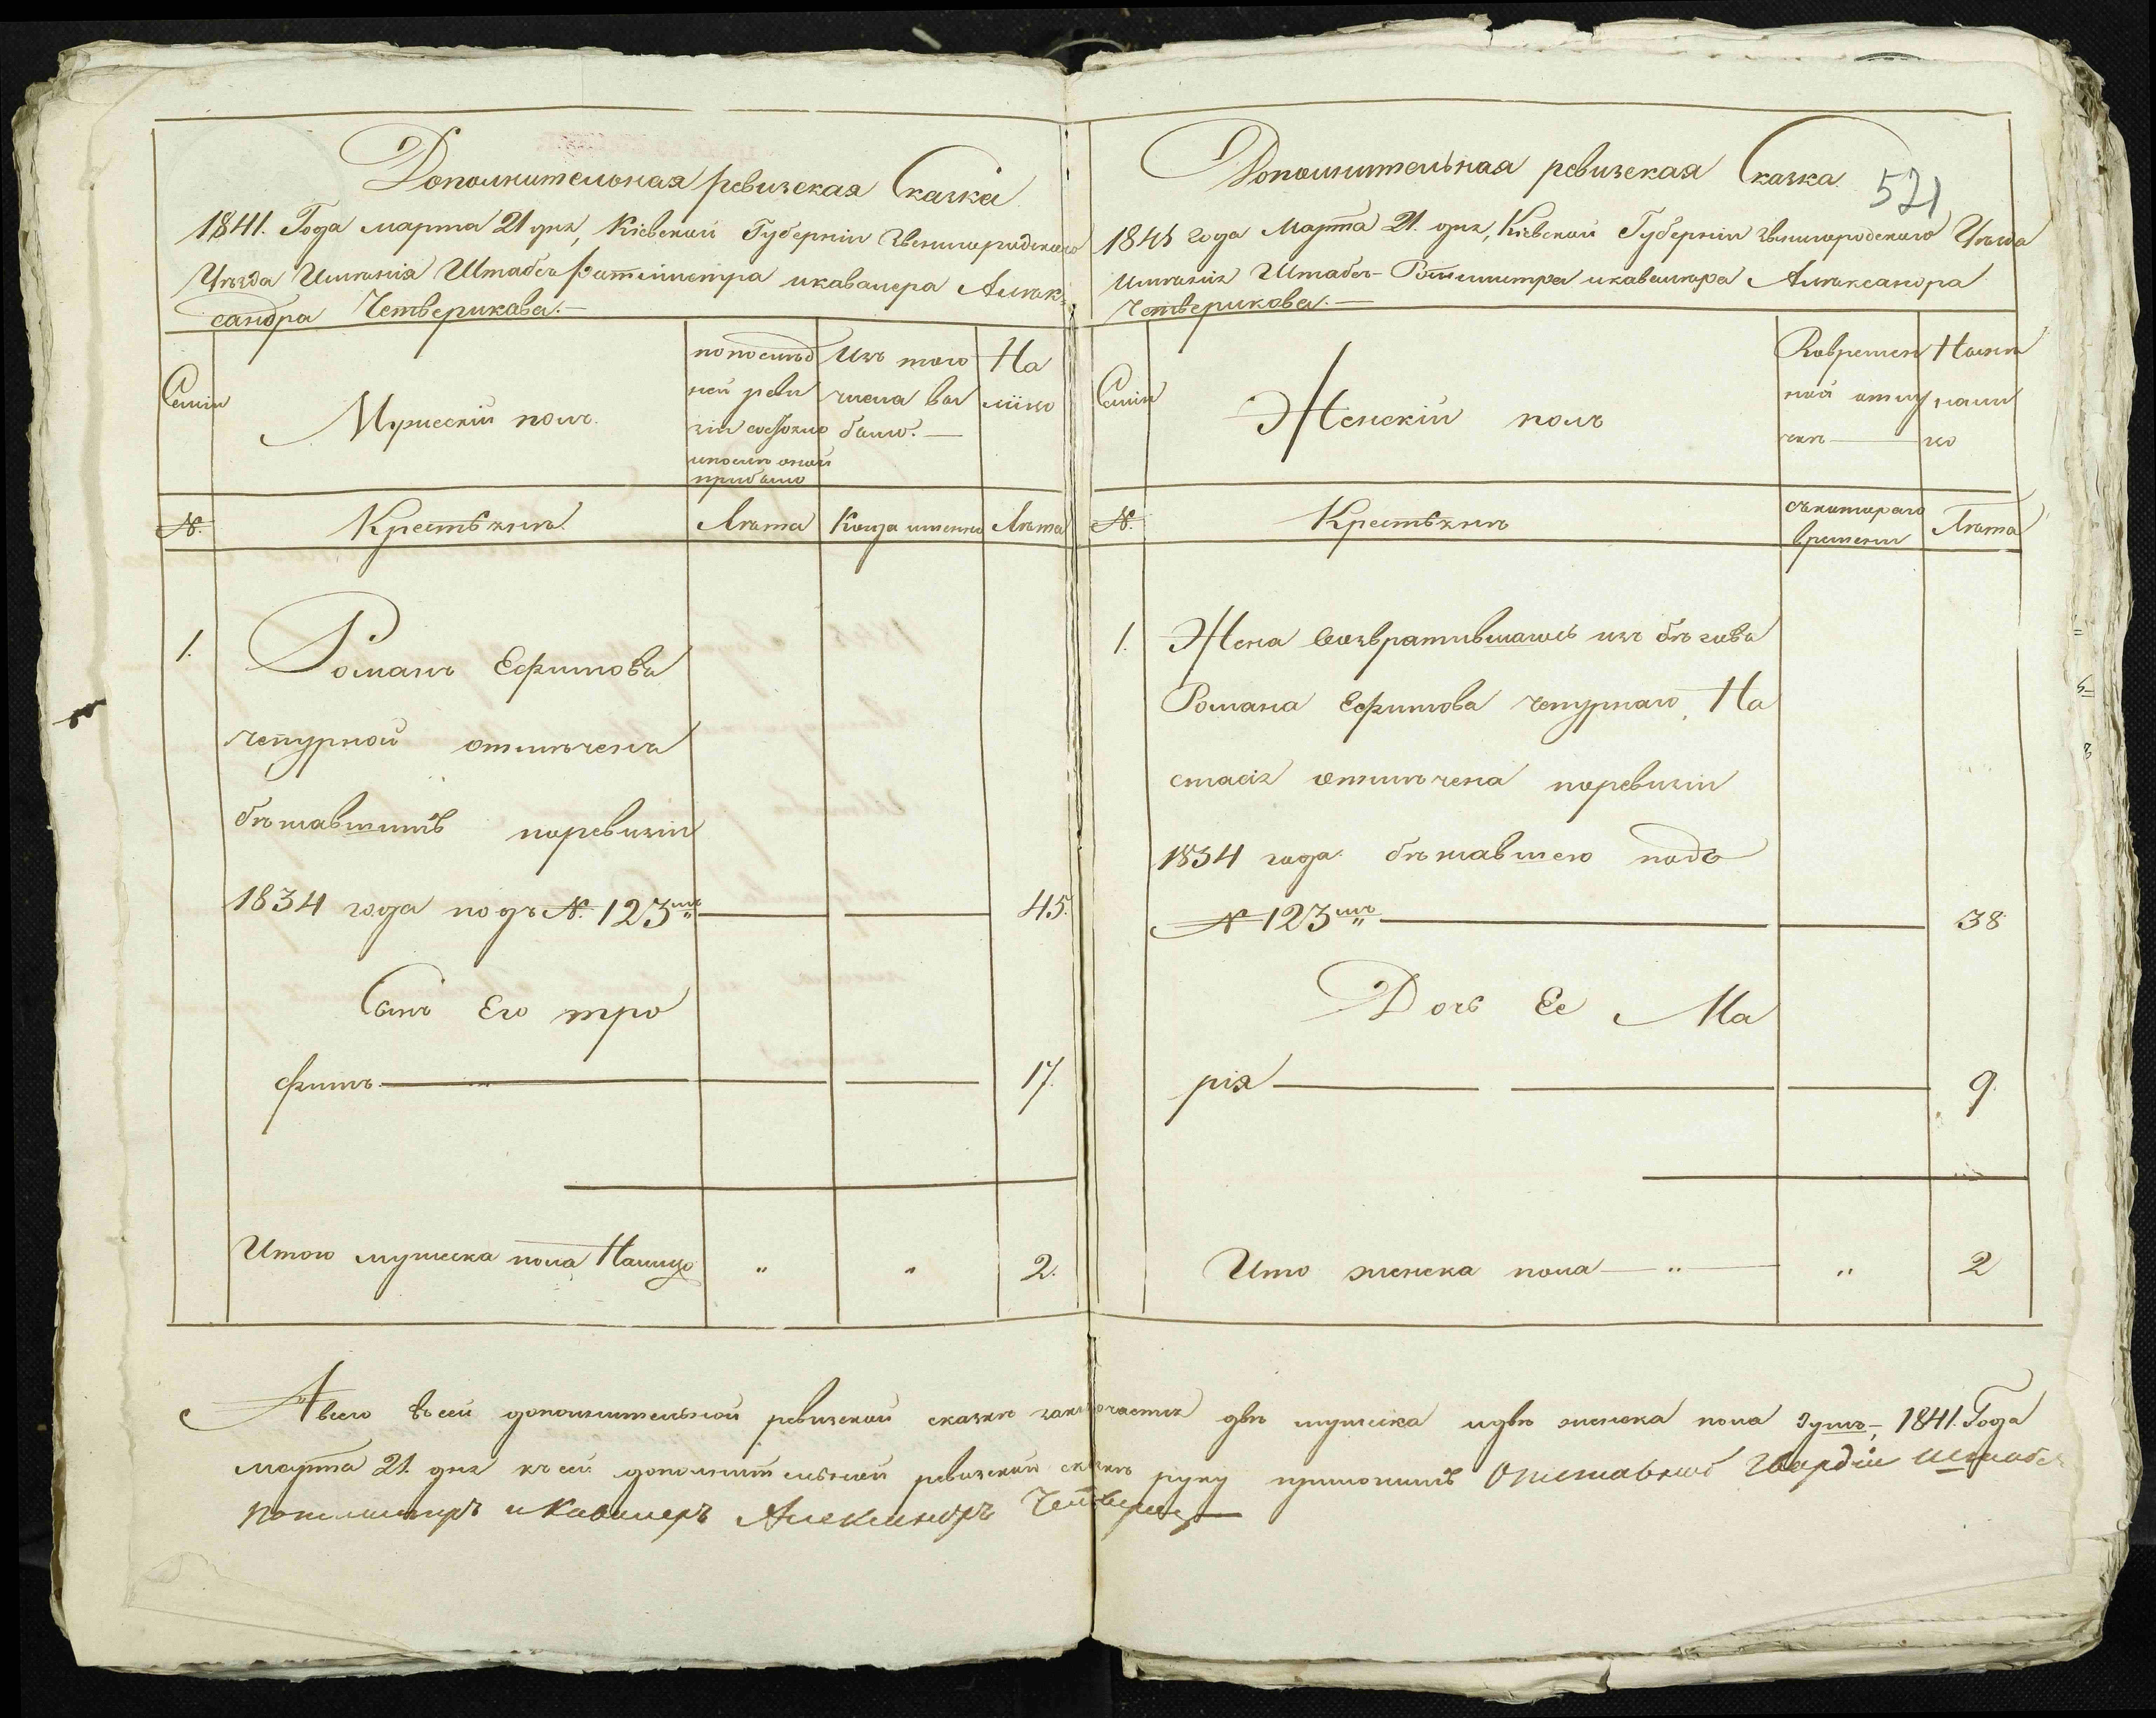 Дополнительная ревизская Сказка
1841. Года марта 21 дня, Кіевской Губерніи Звенигородскаго
Уѣзда Имѣнія Штабсъ Ротмистра и кавалера Алек-
сандра Четверикова.—
Семьи
Мужескій полъ.
по послѣд
ней реви
зіи состояло
и послѣ оной
прибыло
Изъ того
числа вы
было.—
На
лицо
№.
Крестьянъ
Лѣта
Когда именно
Лѣта
1.
Романъ Ефимовъ
чепурной отмѣченъ
бѣжавшимъ по ревизіи
1834 года подъ № 123мъ
45.
Сынъ Его тро
фимъ
17.
Итого мужеска пола Налицо " " 2.
Дополнительная ревизская Сказка
521
1841 года Марта 21. дня, Кіевской Губерніи Звенигородскаго Уѣзда
Имѣнія Штабсъ-Ротмистра и кавалера Александра
Четверикова.—
Семьи
Женскій полъ
Во времен
ной отлу
чкѣ
Нынѣ
нали
цо
№.
Крестьянъ
съ котораго
времени
Лѣта
1. Жена возвратившагось изъ бѣговъ
Романа Ефимова чепурнаго, На
стасія отмѣчена по ревизіи
1834 года бѣжавшею подъ
№ 123мъ
38
Дочь Ее Ма
рія
9.
Итого женска пола — " " 2
А всего въ сей дополнительной ревизской сказкѣ заключается двѣ мужеска и двѣ женска пола душъ, 1841. Года
Марта 21. дня къ сей дополнительной ревизской сказкѣ руку приложилъ Отставной Гвардіи Штабсъ
Ротмистръ и Кавалеръ Александръ Четвериковъ